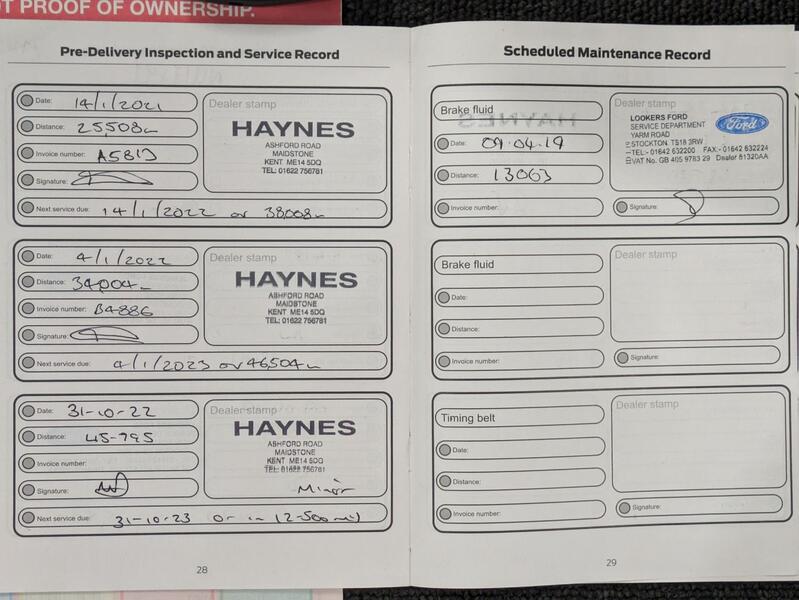 OT PROOF OF OWNERSHIP.
Pre-Delivery Inspection and Service Record
Date: 14/1/2021
Distance: 25508m
Invoice number: A5813
Signature:
Next service due: 14/1/2022 or 38,008m
Dealer stamp
HAYNES
ASHFORD ROAD
MAIDSTONE
KENT ME14 5DQ
TEL: 01622 756781
Date: 4/1/2022
Distance: 34,004m
Invoice number: B4886
Signature:
Next service due: 4/1/2023 or 46,504m
Dealer stamp
HAYNES
ASHFORD ROAD
MAIDSTONE
KENT ME14 5DQ
TEL: 01622 756781
Date: 31-10-22
Distance: 45-795
Invoice number:
Signature:
Next service due: 31-10-23 or in 12-500 mil
Dealer stamp
HAYNES
ASHFORD ROAD
MAIDSTONE
KENT ME14 5DQ
TEL: 01622 756781
Minor
28
Scheduled Maintenance Record
Brake fluid
Date: 09.04.19
Distance: 13063
Invoice number:
Dealer stamp
LOOKERS FORD
SERVICE DEPARTMENT
YARM ROAD
STOCKTON. TS18 3RW
TEL:- 01642 632200 FAX:- 01642 632224
VAT No. GB 405 9783 29 Dealer 81320AA
Ford
Signature:
Brake fluid
Date:
Distance:
Invoice number:
Dealer stamp
Signature:
Timing belt
Date:
Distance:
Invoice number:
Dealer stamp
Signature:
29